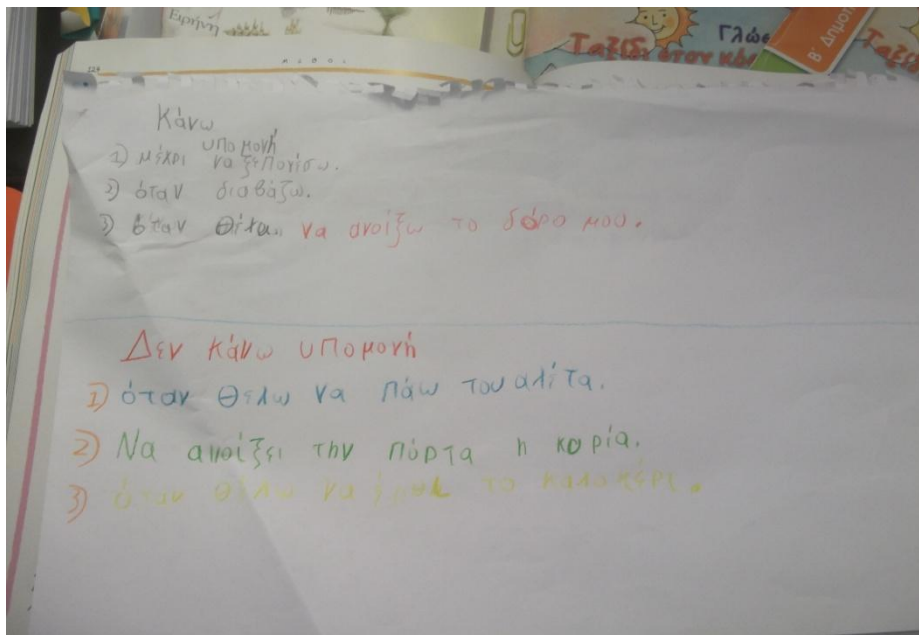 Ειρήνη
Γλώσ
Ταξίδι στον κόσ
Β΄ Δημοτ
Ταξίδ
124
Κάνω
υπομονή
1) μέχρι να ξεπονέσω.
2) όταν διαβάζω.
3) όταν να ανοίξω το δόρο μου.
Δεν κάνω υπομονή
1) όταν θέλω να πάω τουαλίτα.
2) Να ανοίξει την πόρτα η κορία.
3) όταν θέλω να έρθει το καλοκέρι.